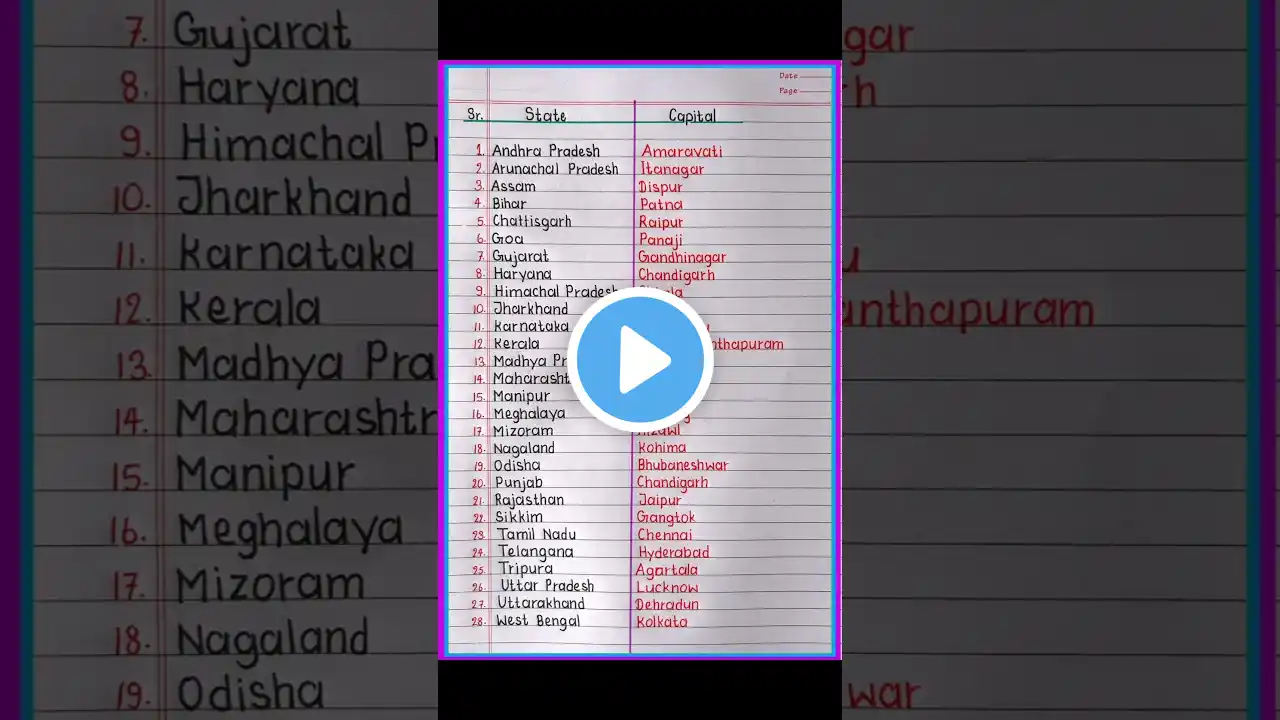 7. Gujarat
8. Haryana
9. Himachal
10. Jharkhand
11. Karnataka
12. Kerala
13. Madhya
14.
15. Manipur
16. Meghalaya
17. Mizoram
18. Nagaland
19. Odisha
Date
Page
Sr. State Capital
1. Andhra Pradesh Amaravati
2. Arunachal Pradesh Itanagar
3. Assam Dispur
4. Bihar Patna
5. Chattisgarh Raipur
6. Goa Panaji
7. Gujarat Gandhinagar
8. Haryana Chandigarh
9. Himachal Pradesh
10. Jharkhand
11. Karnataka
12. Kerala
13. Madhya
14.
15. Manipur
16. Meghalaya
17. Mizoram
18. Nagaland Kohima
19. Odisha Bhubaneshwar
20. Punjab Chandigarh
21. Rajasthan Jaipur
22. Sikkim Gangtok
23. Tamil Nadu Chennai
24. Telangana Hyderabad
25. Tripura Agartala
26. Uttar Pradesh Lucknow
27. Uttarakhand Dehradun
28. West Bengal Kolkata